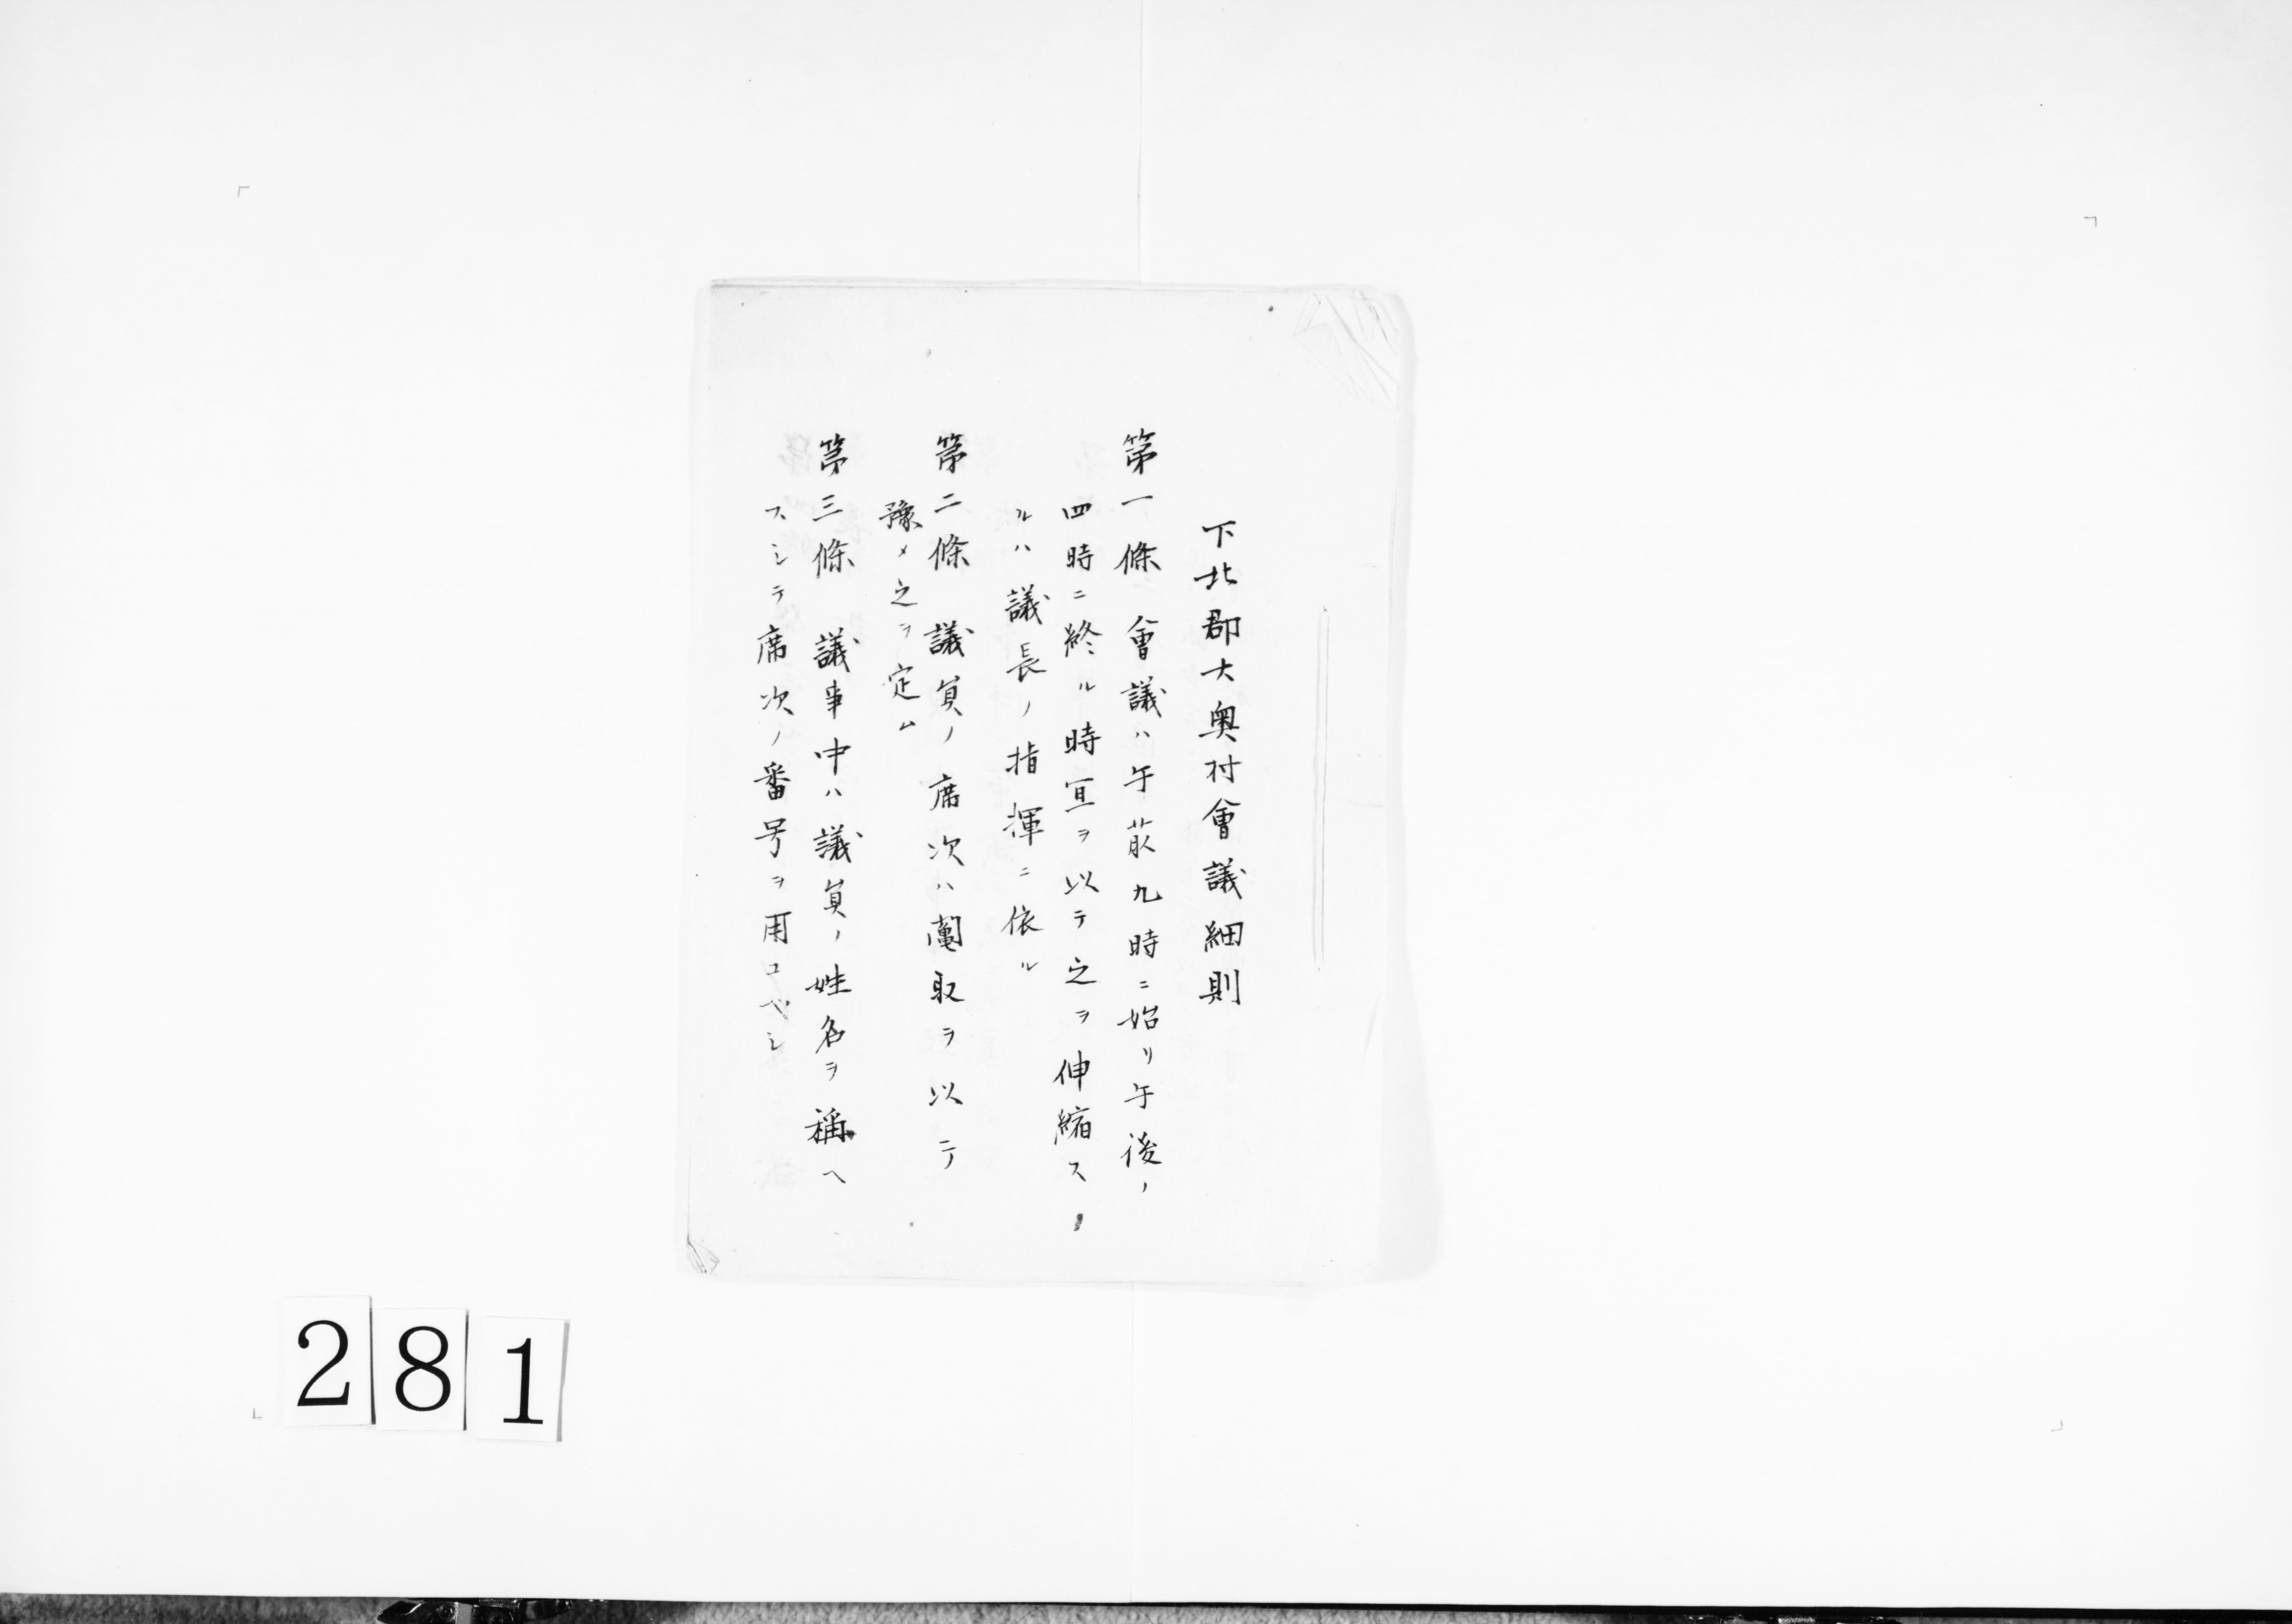 下北郡大奥村會議細則
第一條　會議ハ午前九時ニ始リ午後ノ
四時ニ終ル時宜ヲ以テ之ヲ伸縮ス
ルハ議長ノ指揮ニ依ル
第二條　議員ノ席次ハ鬮取ヲ以テ
豫メ之ヲ定ム
第三條　議事中ハ議員ノ姓名ヲ稱ヘ
スシテ席次ノ番号ヲ用ユベシ
281